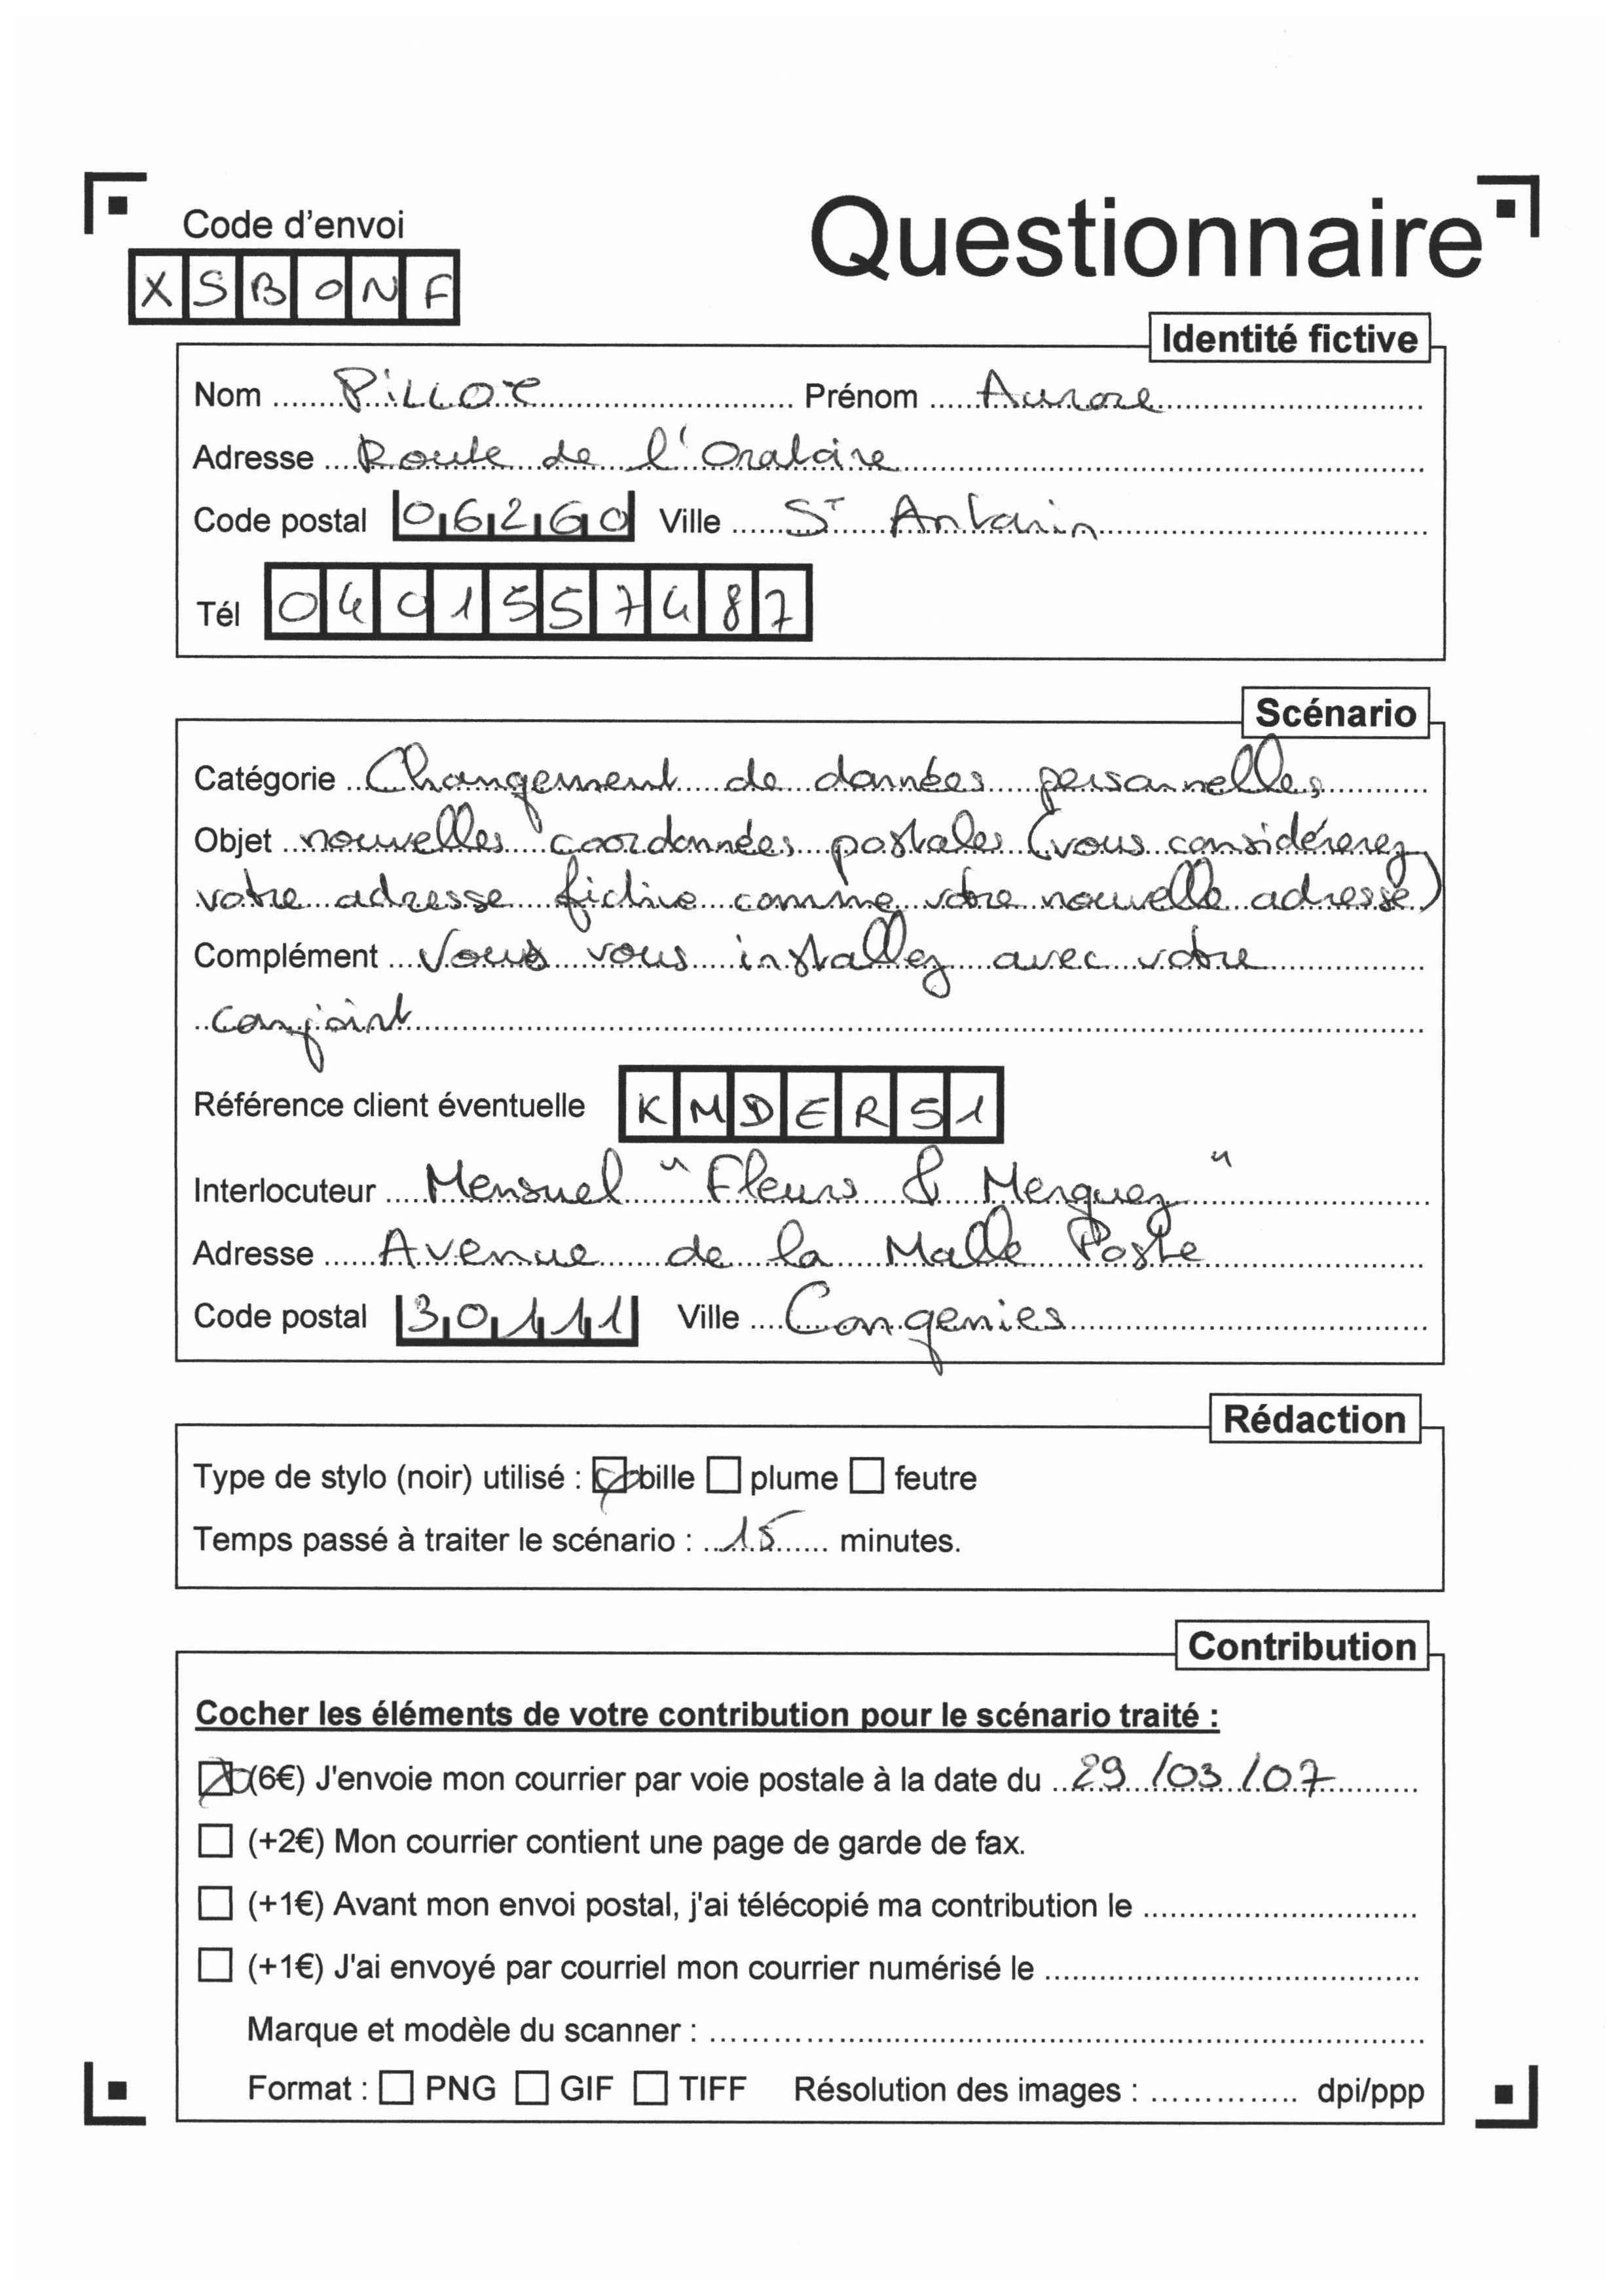 Code d'envoi
Questionnaire
XSBONF
Identité fictive
Nom PiLLOT Prénom Aurore
Adresse Route de l'Oratoire
Code postal 06260 Ville St Antonin
Tél 0401557487
Scénario
Catégorie Changement de données personnelles
Objet nouvelles coordonnées postales (vous considérerez
votre adresse fictive comme votre nouvelle adresse)
Complément Vous vous installez avec votre
conjoint
Référence client éventuelle KMDER51
Interlocuteur Mensuel "Fleurs & Merguez"
Adresse Avenue de la Malle Poste
Code postal 30111 Ville Congenies
Rédaction
Type de stylo (noir) utilisé : bille plume feutre
Temps passé à traiter le scénario : 15 minutes.
Contribution
Cocher les éléments de votre contribution pour le scénario traité :
(6€) J'envoie mon courrier par voie postale à la date du 29/03/07
(+2€) Mon courrier contient une page de garde de fax.
(+1€) Avant mon envoi postal, j'ai télécopié ma contribution le
(+1€) J'ai envoyé par courriel mon courrier numérisé le
Marque et modèle du scanner :
Format : PNG GIF TIFF Résolution des images : dpi/ppp